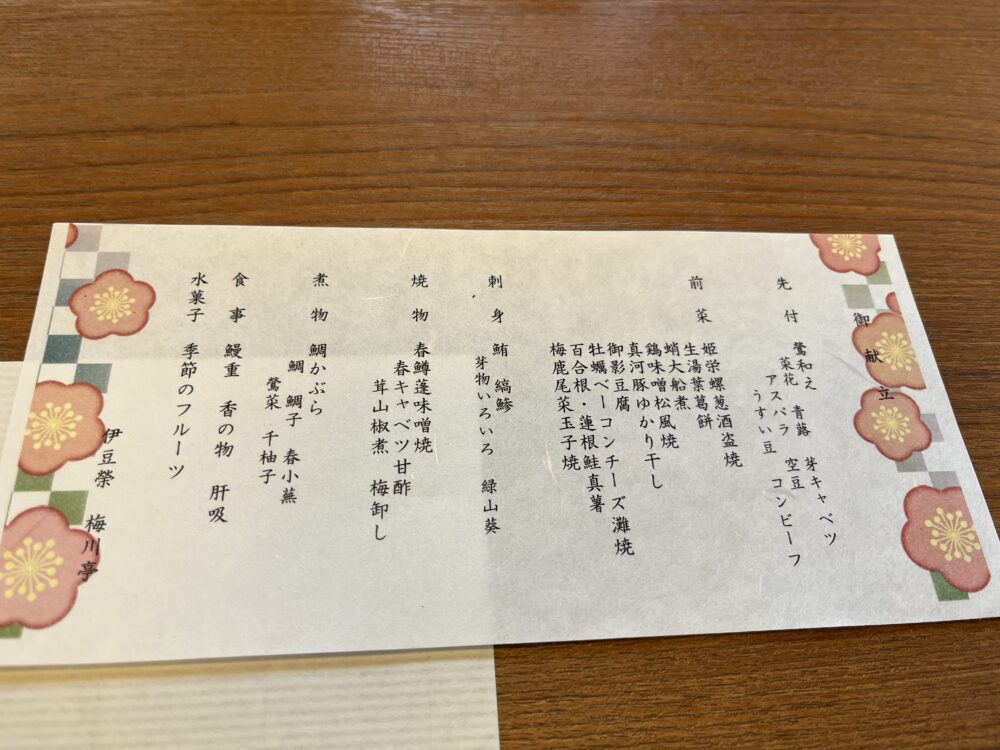 御献立
先付 鶯和え 青蕗 芽キャベツ
菜花 アスパラ 空豆 コンビーフ
うすい豆
前菜 姫栄螺葱酒盗焼
生湯葉葛餅
蛸大船煮
鶏味噌松風焼
真河豚ゆかり干し
御影豆腐
牡蠣ベーコンチーズ灘焼
百合根・蓮根鮭真薯
梅鹿尾菜玉子焼
刺身 鮪 縞鯵
芽物いろいろ 緑山葵
焼物 春鱒蓬味噌焼
春キャベツ甘酢
茸山椒煮 梅卸し
煮物 鯛かぶら
鯛 鯛子 春小蕪
鶯菜 千柚子
食事 鰻重 香の物 肝吸
水菓子 季節のフルーツ
伊豆榮 梅川亭